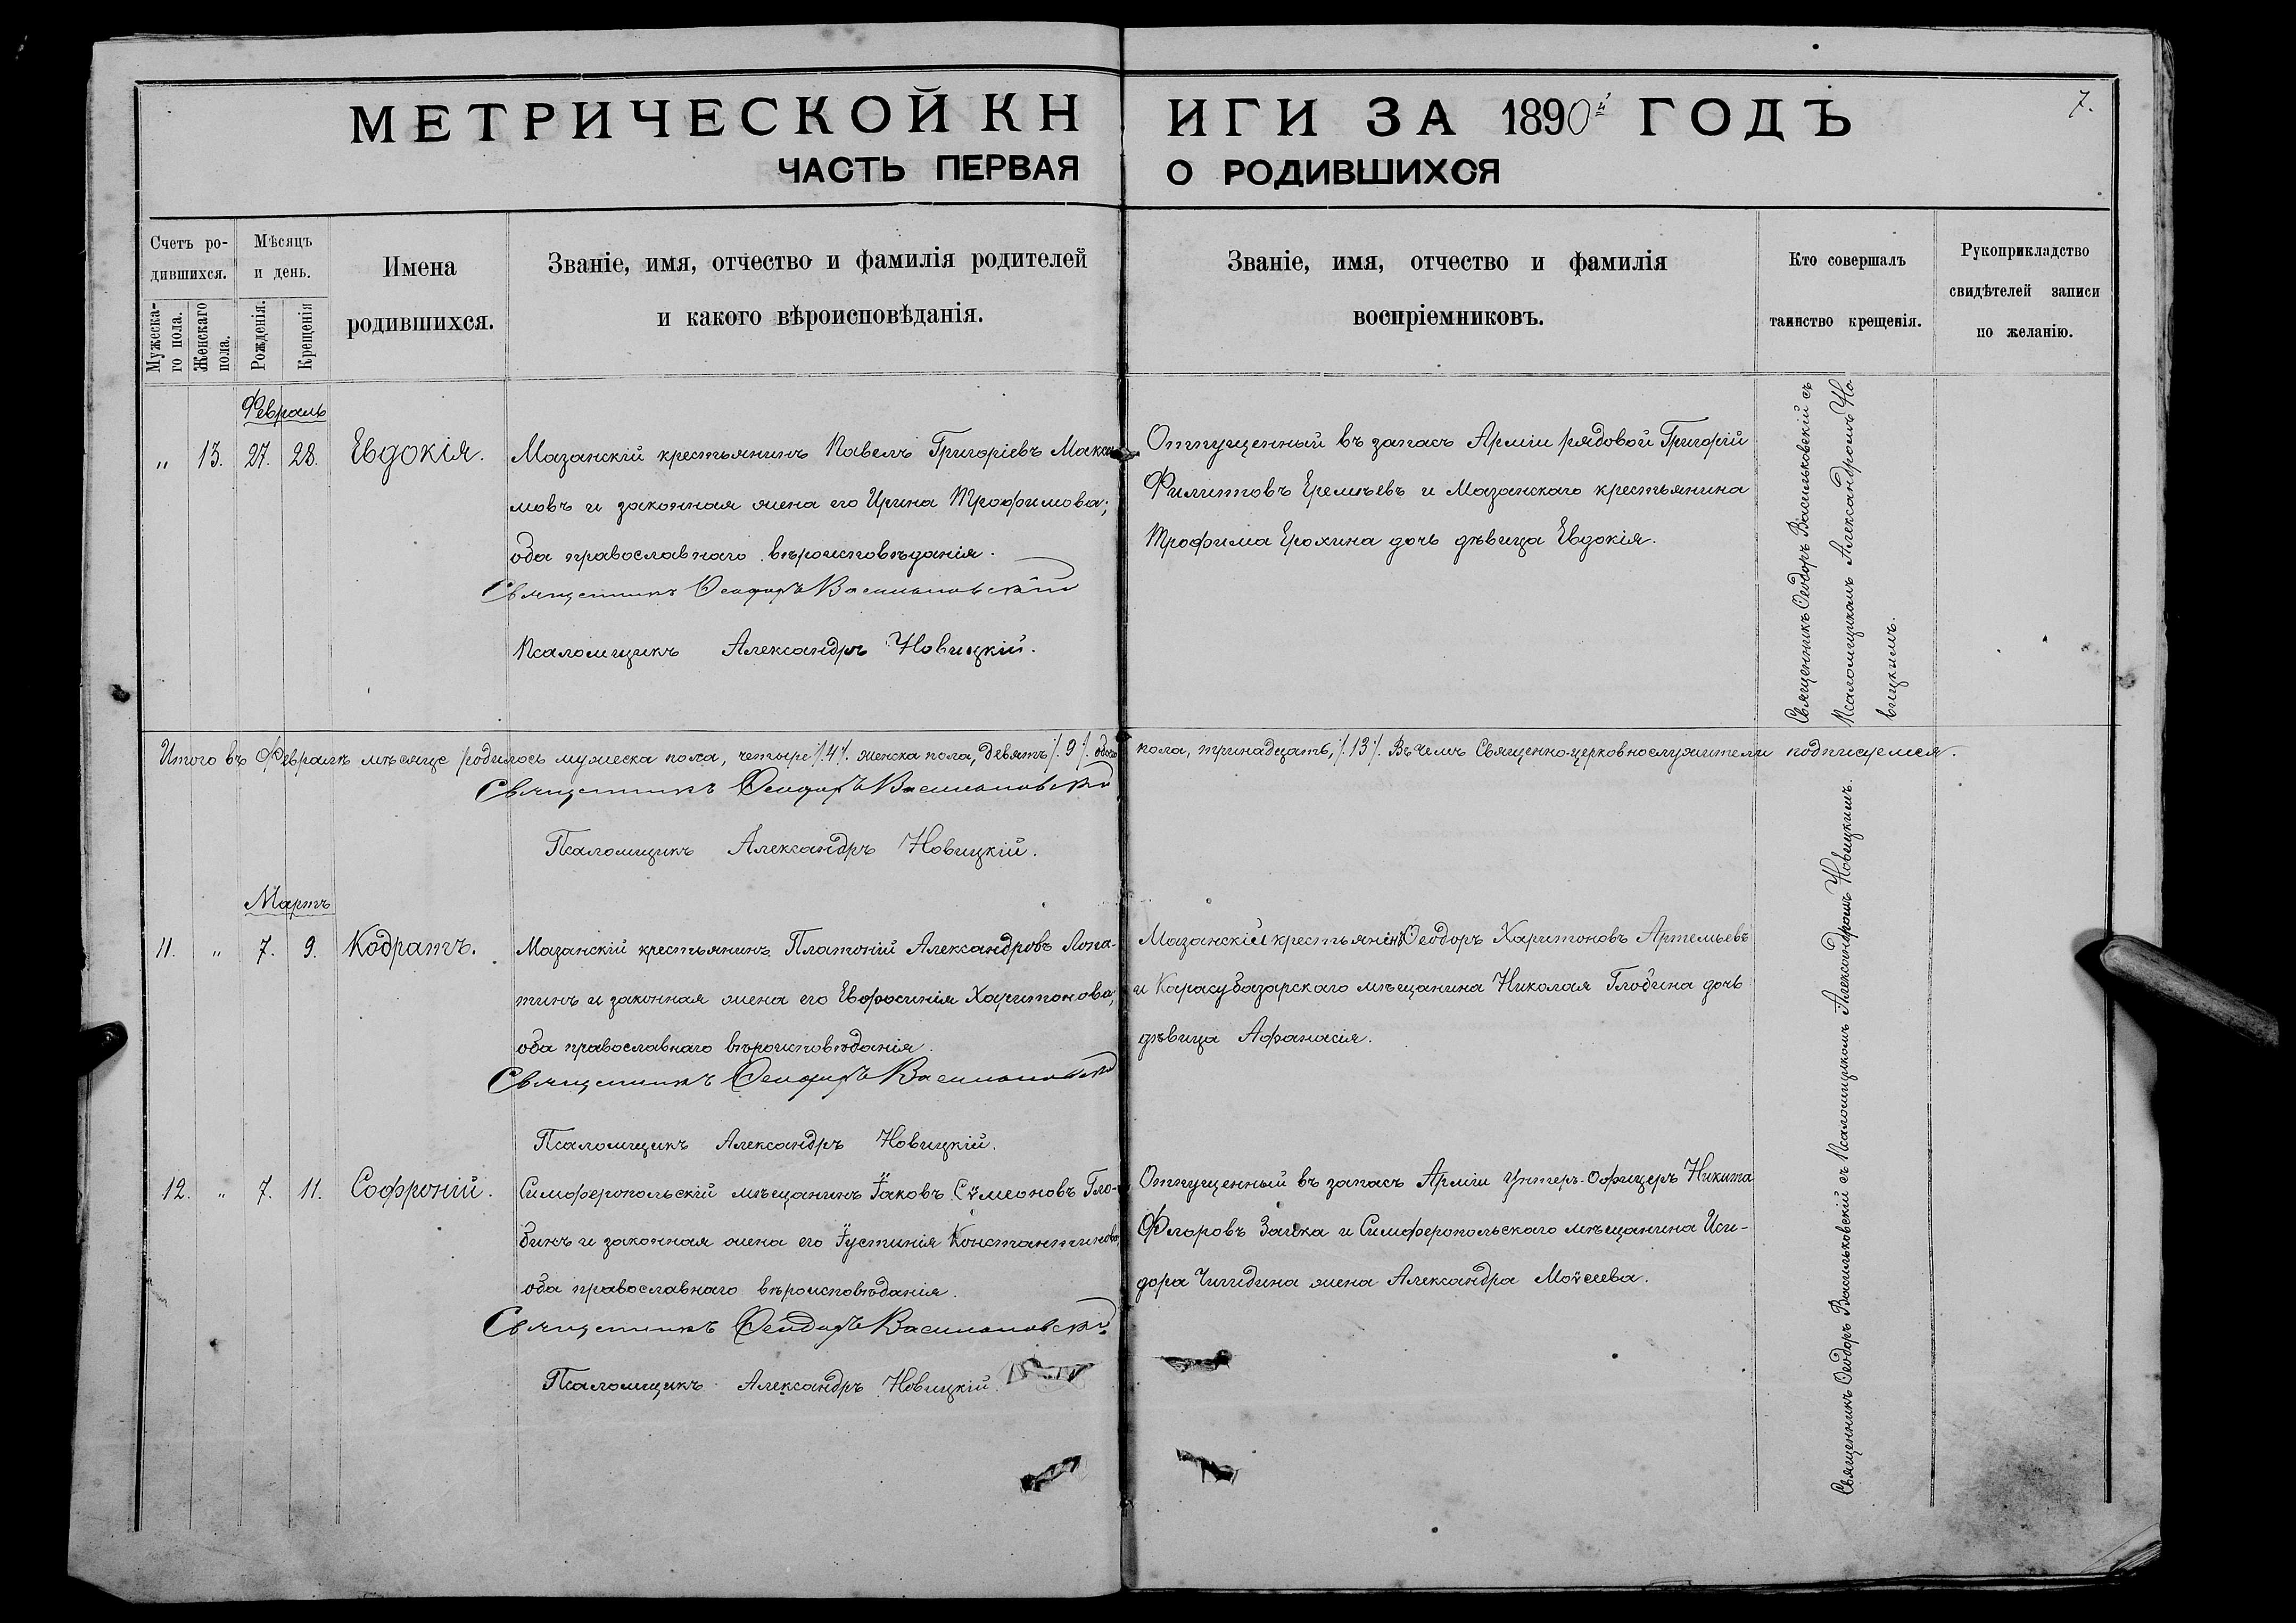 МЕТРИЧЕСКОЙ КНИГИ ЗА 1890й ГОДЪ
7.
ЧАСТЬ ПЕРВАЯ О РОДИВШИХСЯ
Счетъ ро-
дившихся.
Мужеска-
го пола.
Женскаго
пола.
Мѣсяцъ
и день.
Рожденія.
Крещенія
Имена
родившихся.
Званіе, имя, отчество и фамилія родителей
и какого вѣроисповѣданія.
Званіе, имя, отчество и фамилія
воспріемниковъ.
Кто совершалъ
таинство крещенія.
Рукоприкладство
свидѣтелей записи
по желанію.
Февраль
„ 13. 27. 28. Евдокія.
Мазанскій крестьянинъ Павелъ Григоріевъ Макси
мовъ и законная жена его Ирина Трофимова;
оба православнаго вѣроисповѣданія.
Священникъ Ѳеодоръ Васильковскій
Псаломщикъ Александръ Новицкій.
Отпущенный въ запасъ Арміи рядовой Григорій
Филиповъ Еремѣевъ и Мазанскаго крестьянина
Трофима Ерохина дочь дѣвица Евдокія.
Священникъ Ѳеодоръ Васильковскій съ
Псаломщикомъ Александромъ Но
вицкимъ.
Итого въ Февралѣ мѣсяце родилось мужеска пола, четыре /4/. женска пола, девять /.9/. обоего пола, тринадцать, /.13/. Въ чемъ Священно-церковнослужители подписуемся.
Священникъ Ѳеодоръ Васильковскій
Псаломщикъ Александръ Новицкій.
Мартъ
11. „ 7. 9. Кодратъ.
Мазанскій крестьянинъ Платоній Александровъ Лопа-
тинъ и законная жена его Евфросинія Харитонова;
оба православнаго вѣроисповѣданія.
Священникъ Ѳеодоръ Васильковскій
Псаломщикъ Александръ Новицкій.
Мазанскій крестьянинъ Ѳеодоръ Харитоновъ Артемьевъ
и Карасубазарскаго мѣщанина Николая Глобина дочь
дѣвица Афанасія.
12. „ 7. 11. Софроній.
Симферопольскій мѣщанинъ Іаковъ Сѵмеоновъ Гло-
бинъ и законная жена его Іустинія Константинова
оба православнаго вѣроисповѣданія.
Священникъ Ѳеодоръ Васильковскій
Псаломщикъ Александръ Новицкій.
Отпущенный въ запасъ Арміи Унтеръ-Офицеръ Никита
Флоровъ Заика и Симферопольскаго мѣщанина Иси-
дора Чигидина жена Александра Моѵсеева.
Священникъ Ѳеодоръ Васильковскій съ Псаломщикомъ Александромъ Новицкимъ.